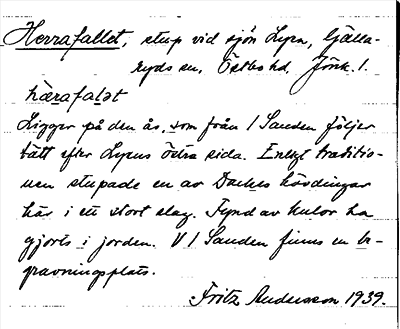 Herrafallet, stup vid sjön Lyen, Gälla-
ryds sn, Östbo hd. Jönk. l.
hærafalət
Ligger på den ås, som från / Sanden följer
tätt efter Lyens östra sida. Enligt traditio-
nen stupade en av Dackes hövdingar
här i ett stort slag. Fynd av kulor ha
gjorts i jorden. V / Sanden finns en be-
gravningsplats.
Fritz Andersson 1939.